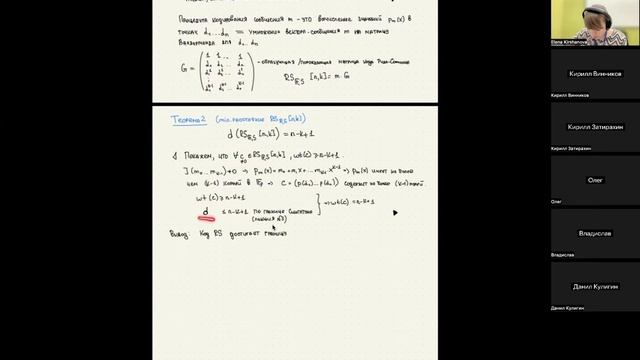 Процедура кодирования сообщения m - это вычисление значений Pm(x) в
точках α₁ ... αn - умножению вектора-сообщения m на матрицу
Вандермонда для α₁...αn
G = ( 1 1 ... 1 / α₁ α₂ ... αn / α₁² α₂² ... αn² / α₁ᵏ⁻¹ α₂ᵏ⁻¹ ... αnᵏ⁻¹ ) - образующая/порождающая матрица кода Рида-Соломона
RS [n,k] = m·G
Теорема 2 (min. расстояние RS [n,k])
d(RS [n,k]) = n-k+1
Покажем, что ∀ c≠0 ∈ RS [n,k], wt(c) ≥ n-k+1.
(m₀...mk-1) ≠ 0 ⇒ Pm(x) = m₀+m₁x+...mk-1·xᵏ⁻¹ ⇒ Pm(x) имеет не более
чем (k-1) корней в Fp ⇒ c = (p(α₁)...p(αn)) содержит не более (k-1) нулей.
wt(c) ≥ n-k+1
d ≤ n-k+1 по границе Синглтона
(лекция №3)
⇒ wt(c) = n-k+1
Вывод: Код RS достигает границы
Elena Kirshanova
Кирилл Винников
Кирилл Винников
Кирилл Затирахин
Кирилл Затирахин
Олег
Олег
Владислав
Владислав
Данил Кулигин
Данил Кулигин